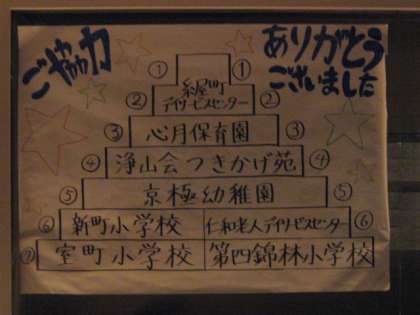 ご協力
ありがとう
ございました
① ①
② 糸屋町
デイサービスセンター ②
③ 心月保育園 ③
④ 浄山会つきかげ苑 ④
⑤ 京極幼稚園 ⑤
⑥ 新町小学校 仁和老人デイサービスセンター ⑥
⑦ 室町小学校 第四錦林小学校